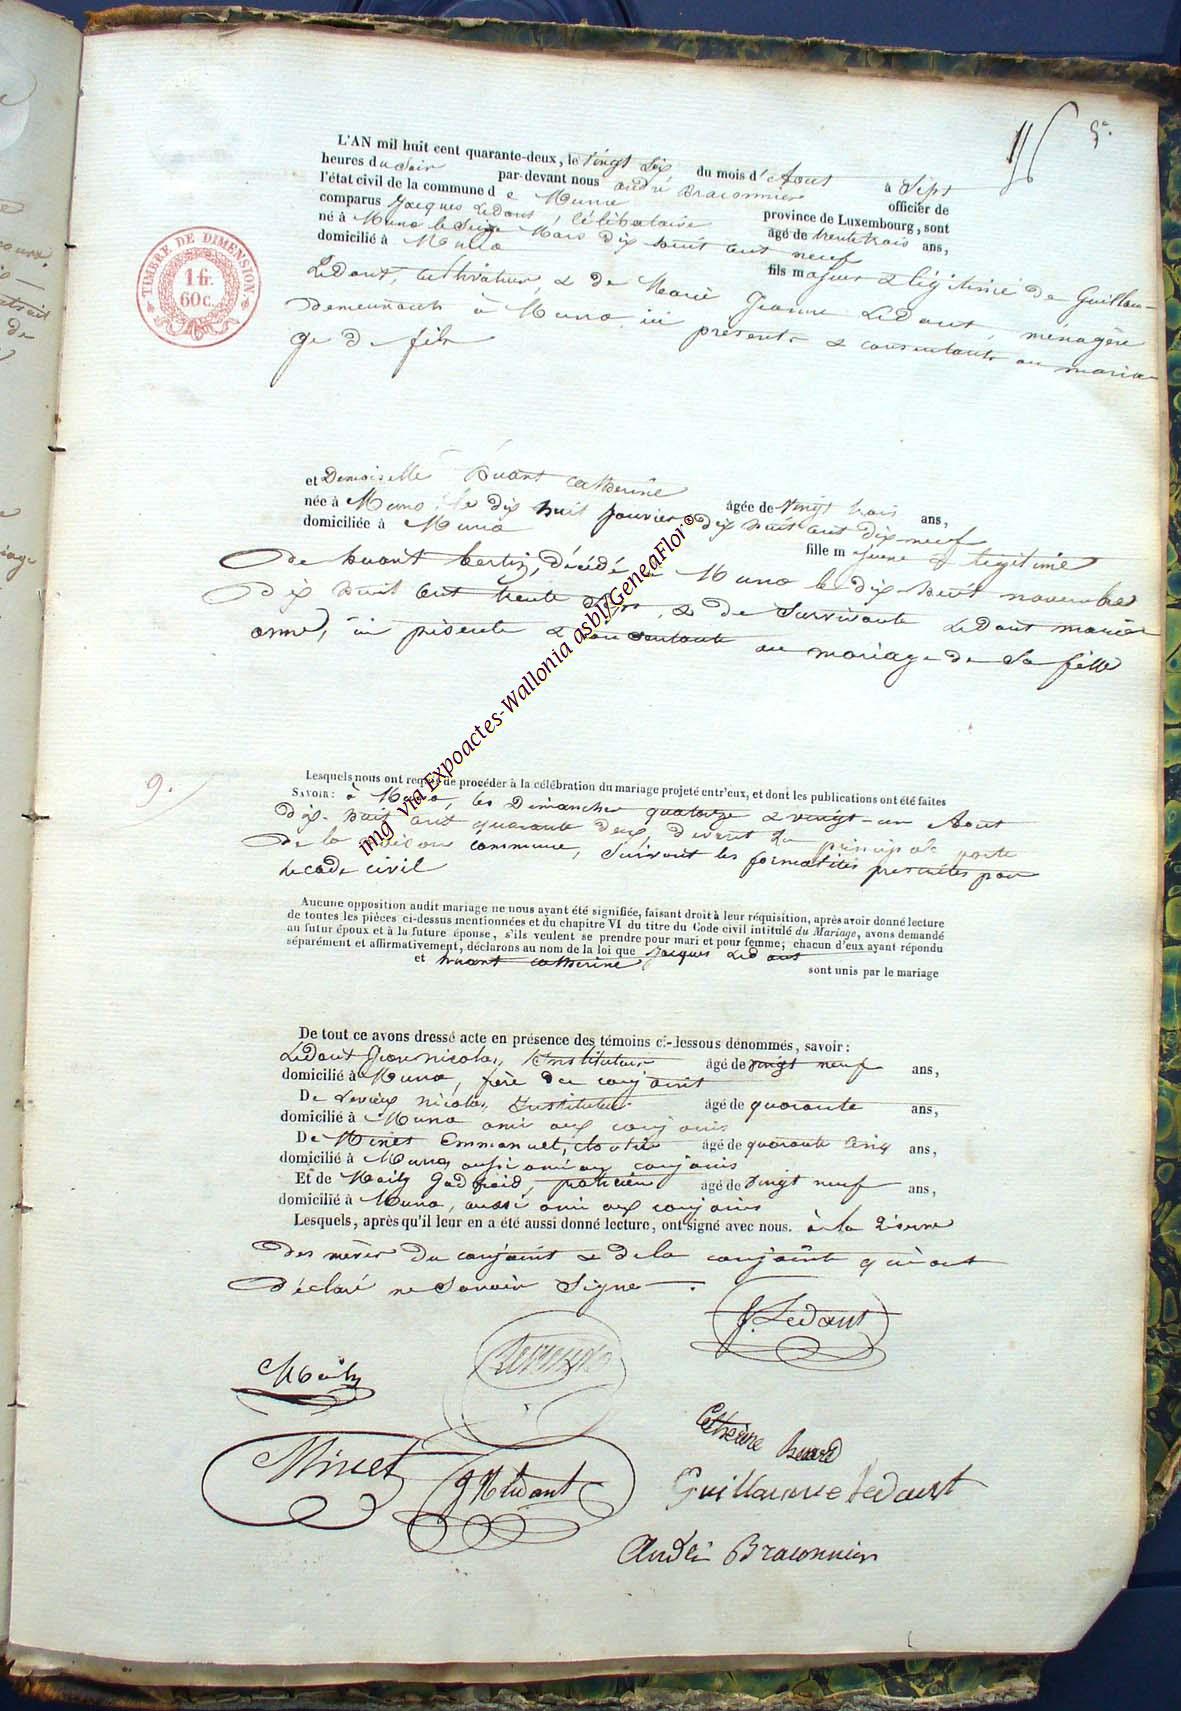 5e.
L'AN mil huit cent quarante-deux, le vingt six du mois d'Aout à Sept
heures du Soir par-devant nous André Braconnier officier de
l'état civil de la commune de Muno province de Luxembourg, sont
comparus Jacques Ledant, célibataire âgé de trente trois ans,
né à Muno le Seize Mars dix huit cent neuf
domicilié à Muno fils majeur & légitime de Guillau-
Ledant, cultivateur, & de Marie Jeanne Ledant, ménagère
demeurants à Muno, ici présents & consentants au maria-
ge de fils
TIMBRE DE DIMENSION
1 fr.
60 c.
et Demoiselle Huart Catherine âgée de vingt trois ans,
née à Muno, le dix huit janvier dix huit cent dix-neuf
domiciliée à Muno fille majeure & légitime
de huart bertin, décédé à Muno le dix-huit novembre
dix huit cent trente & de Survivante Ledant marie
anne, ici présente & consentante au mariage de Sa fille
9.
Lesquels nous ont requis de procéder à la célébration du mariage projeté entr'eux, et dont les publications ont été faites
SAVOIR: à Muno, les Dimanches quatorze & vingt-un Aout
dix-huit cent quarante deux, devant la principale porte
de la maison commune, Suivant les formalités prescrites par
le code civil
Aucune opposition audit mariage ne nous ayant été signifiée, faisant droit à leur réquisition, après avoir donné lecture
de toutes les pièces ci-dessus mentionnées et du chapitre VI du titre du Code civil intitulé du Mariage, avons demandé
au futur époux et à la future épouse, s'ils veulent se prendre pour mari et pour femme; chacun d'eux ayant répondu
séparément et affirmativement, déclarons au nom de la loi que Jacques Ledant
et huart catherine sont unis par le mariage
De tout ce avons dressé acte en présence des témoins ci-dessous dénommés, savoir:
Ledant Jean nicolas, Instituteur âgé de vingt neuf ans,
domicilié à Muno, frère du conjoint
De nicolas, Instituteur âgé de quarante ans,
domicilié à Muno ami aux conjoints
De Minet Emmanuel, cloutier âgé de quarante cinq ans,
domicilié à Muno, aussi ami aux conjoints
Et de Godfroid, âgé de vingt neuf ans,
domicilié à Muno, aussi ami aux conjoints
Lesquels, après qu'il leur en a été aussi donné lecture, ont signé avec nous. à la réserve
des mères du conjoint & de la conjointe qui ont
déclaré ne Savoir Signer.
J. Ledant
Catherine huard
Minet
JN Ledant
Guillaume Ledant
André Braconnier
img via Expoactes-Wallonia asbl/GeneaFlor©